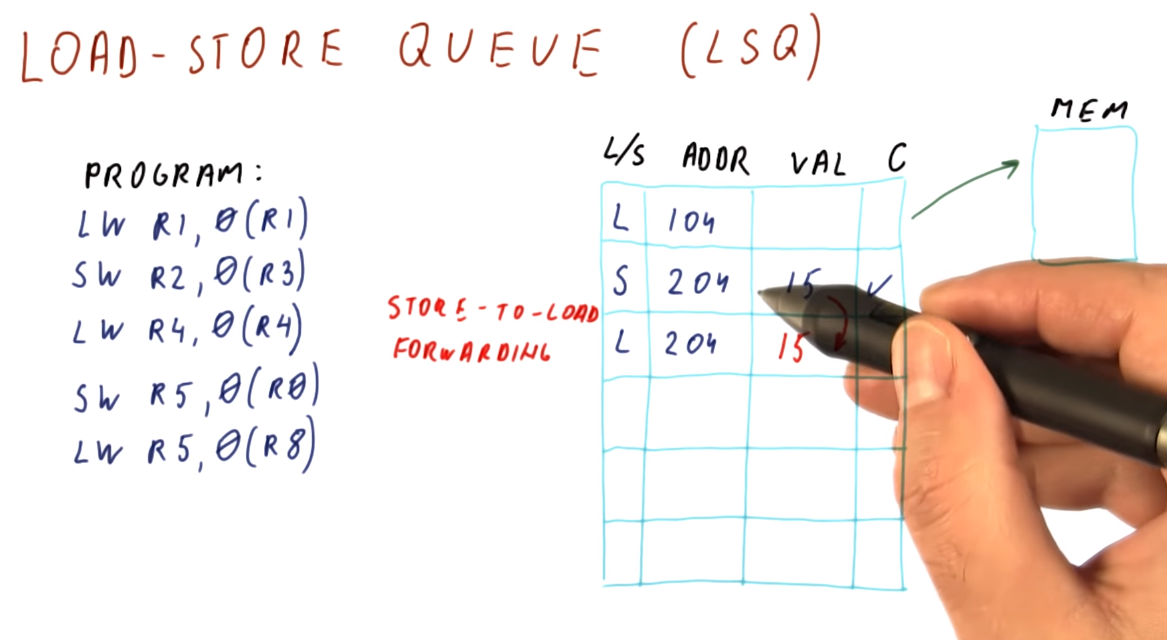 LOAD-STORE QUEUE (LSQ)
PROGRAM:
LW R1, 0(R1)
SW R2, 0(R3)
LW R4, 0(R4)
SW R5, 0(R0)
LW R5, 0(R8)
STORE-TO-LOAD
FORWARDING
L/S ADDR VAL C
L 104
S 204 15 ✓
L 204 15
MEM